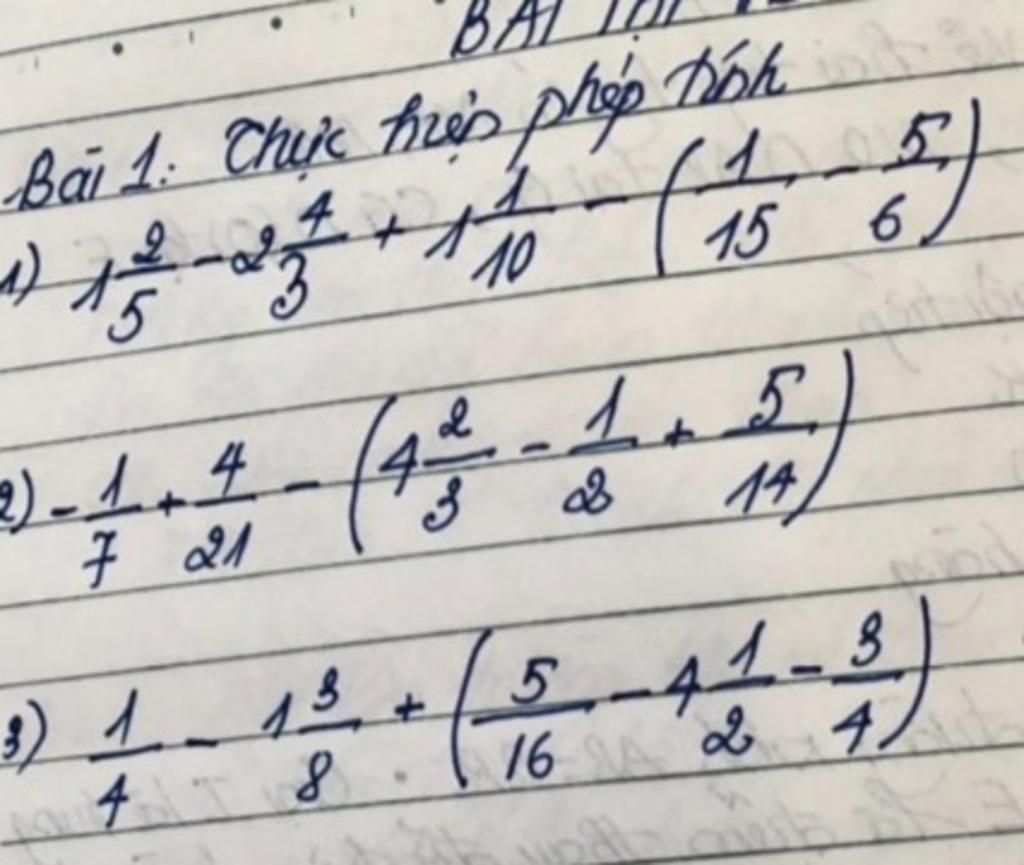 BÀI
Bài 1: Thực hiện phép tính
1) 1 2/5 - 2 4/3 + 1 1/10 - (1/15 - 5/6)
2) - 1/7 + 4/21 - (4 2/3 - 1/2 + 5/14)
3) 1/4 - 1 3/8 + (5/16 - 4 1/2 - 3/4)